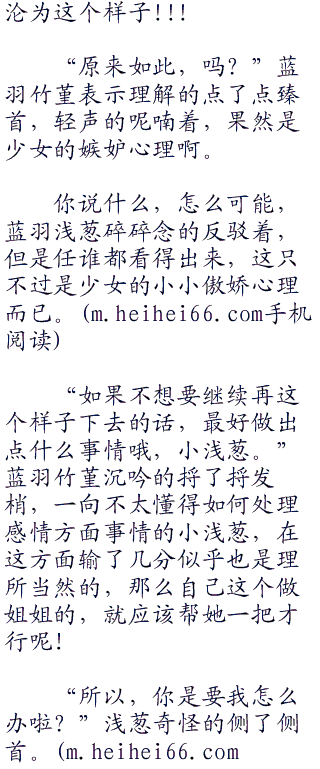 沦为这个样子!!!
“原来如此，吗？”蓝
羽竹堇表示理解的点了点臻
首，轻声的呢喃着，果然是
少女的嫉妒心理啊。
你说什么，怎么可能，
蓝羽浅葱碎碎念的反驳着，
但是任谁都看得出来，这只
不过是少女的小小傲娇心理
而已。(m.heihei66.com手机
阅读)
“如果不想要继续再这
个样子下去的话，最好做出
点什么事情哦，小浅葱。”
蓝羽竹堇沉吟的捋了捋发
梢，一向不太懂得如何处理
感情方面事情的小浅葱，在
这方面输了几分似乎也是理
所当然的，那么自己这个做
姐姐的，就应该帮她一把才
行呢!
“所以，你是要我怎么
办啦？”浅葱奇怪的侧了侧
首。(m.heihei66.com